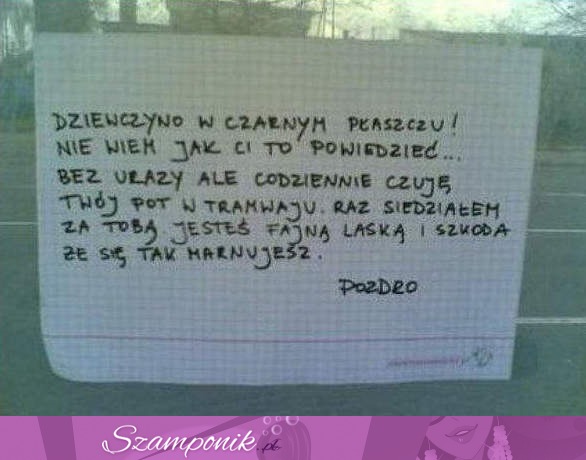 DZIEWCZYNO W CZARNYM PŁASZCZU!
NIE WIEM JAK CI TO POWIEDZIEĆ...
BEZ URAZY ALE CODZIENNIE CZUJĘ
TWÓJ POT W TRAMWAJU. RAZ SIEDZIAŁEM
ZA TOBĄ JESTEŚ FAJNĄ LASKĄ I SZKODA
ŻE SIĘ TAK MARNUJESZ.
POZDRO
Szamponik.pl